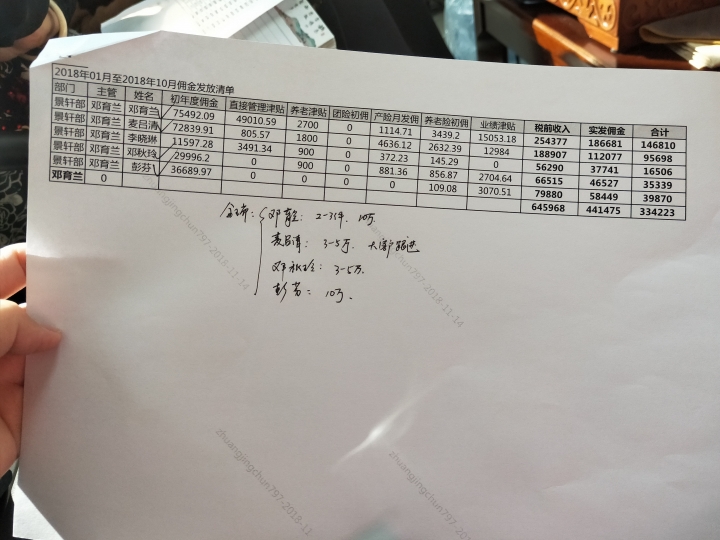 2018年01月至2018年10月佣金发放清单
部门 主管 姓名 初年度佣金 直接管理津贴 养老津贴 团险初佣 产险月发佣 养老险初佣 业绩津贴 税前收入 实发佣金 合计
景轩部 邓育兰 邓育兰 75492.09 49010.59 2700 0 1114.71 3439.2 15053.18 254377 186681 146810
景轩部 邓育兰 麦吕清 72839.91 805.57 1800 0 4636.12 2632.39 12984 188907 112077 95698
景轩部 邓育兰 李晓琳 11597.28 3491.34 900 0 372.23 145.29 0 56290 37741 16506
景轩部 邓育兰 邓秋玲 29996.2 0 900 0 881.36 856.87 2704.64 66515 46527 35339
景轩部 邓育兰 彭芬 36689.97 0 0 0 0 109.08 3070.51 79880 58449 39870
邓育兰 0 645968 441475 334223
2-3件、10万
麦吕清： 3-5万、
邓秋玲： 3-5万、
彭芬： 10万、
zhuangjingchun797-2018-11-14
zhuangjingchun797-2018-11-14
zhuangjingchun797-2018-11
zhuangjingchun797-2018